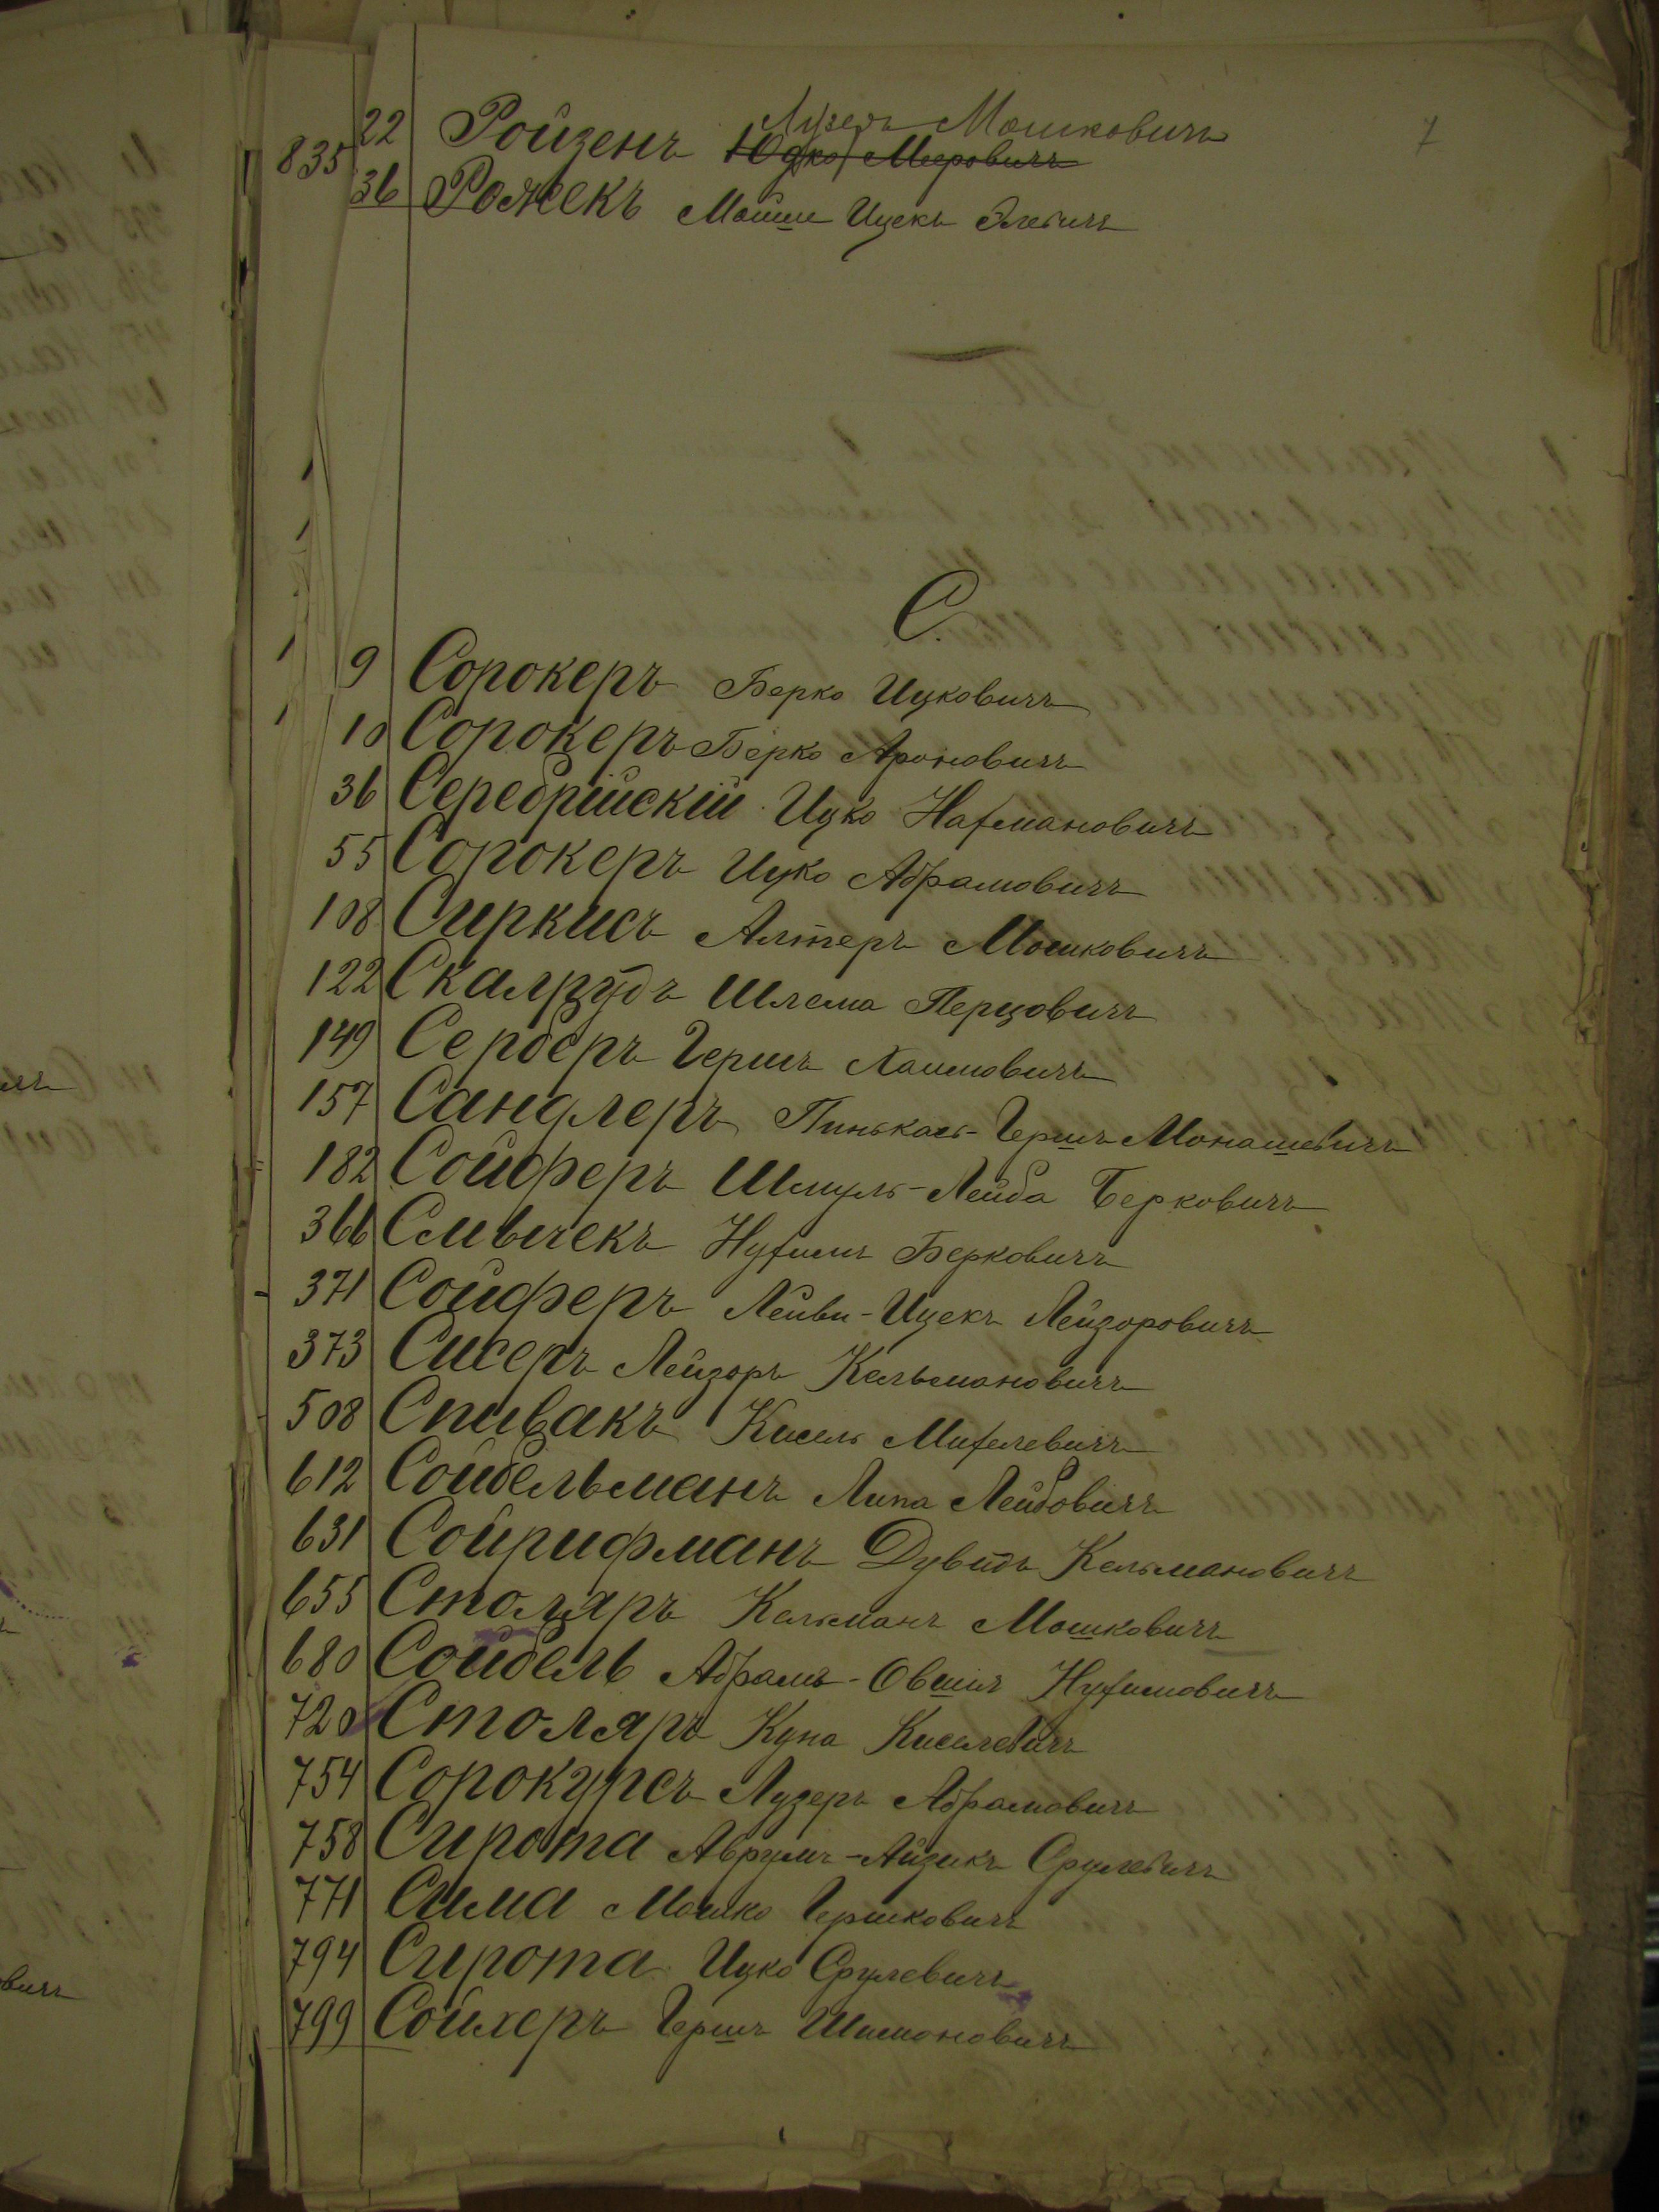 7
22 Ройзенъ Лузеръ Мошковичъ
Юдко Мееровичъ
835
36 Рожекъ Мойше Ицекъ Элевичъ
С.
9 Сорокеръ Берко Ицковичъ
10 Сорокеръ Берко Ароновичъ
36 Серебрійскій Ицко Нахмановичъ
55 Сорокеръ Ицко Абрамовичъ
108 Сиркисъ Алтеръ Мошковичъ
122 Скалрудъ Шлема Перцовичъ
149 Серберъ Гершъ Хаимовичъ
157 Сандлеръ Пинькасъ-Гершъ Монашевичъ
182 Сойферъ Шмуль-Лейба Берковичъ
366 Смычекъ Нухимъ Берковичъ
371 Сойферъ Лейви-Ицекъ Лейзоровичъ
373 Сисеръ Лейзоръ Кельмановичъ
508 Спивакъ Кисель Михелевичъ
612 Сойбельманъ Липа Лейбовичъ
631 Сойрифманъ Дувидъ Кельмановичъ
655 Столяръ Кельманъ Мошковичъ
680 Сойбель Абрамъ-Овшія Нухимовичъ
720 Столяръ Куна Киселевичъ
754 Сорокурсъ Лузеръ Абрамовичъ
758 Сирота Аврумъ-Айзикъ Срулевичъ
771 Сима Мошко Гершковичъ
794 Сирота Ицко Срулевичъ
799 Сойхеръ Гершъ Шимоновичъ